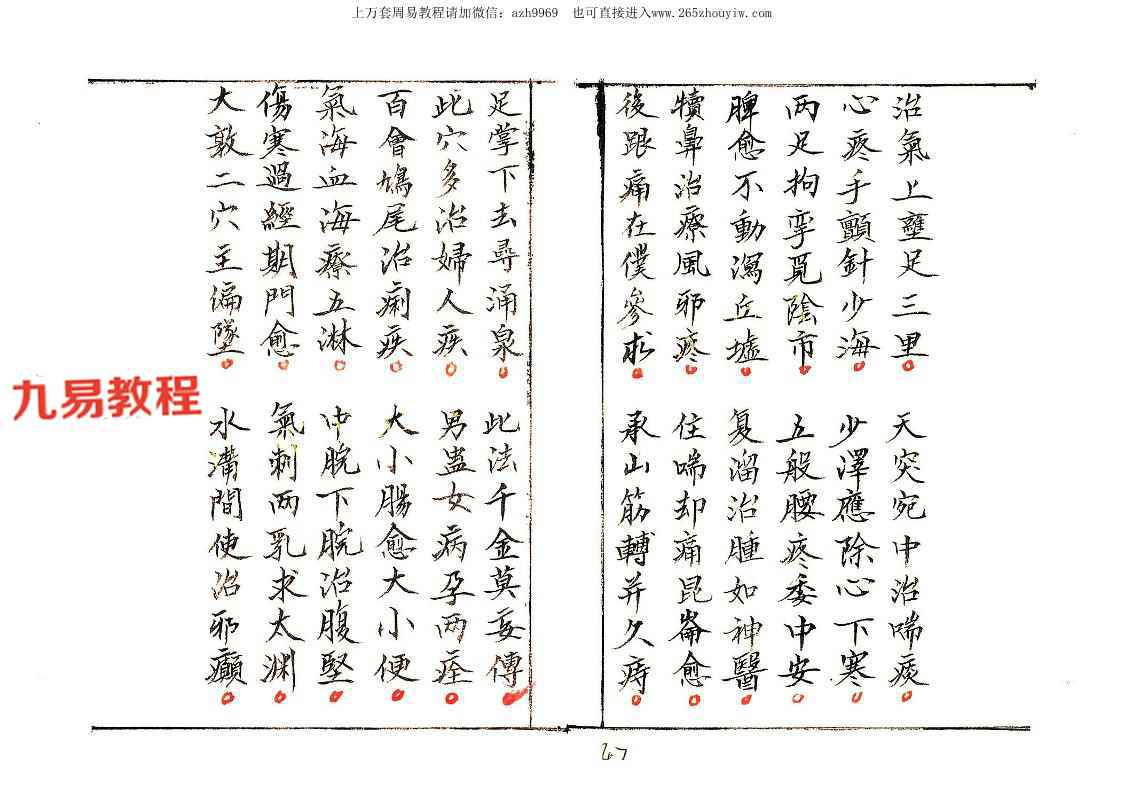 上万套周易教程请加微信：azh9969　也可直接进入www.265zhouyiw.com
治氣上壅足三里　天突宛中治喘痰
心疼手顫針少海　少澤應除心下寒
两足拘挛覓陰市　五般腰疼委中安
脾愈不動瀉丘墟　复溜治腫如神醫
犢鼻治療風邪疼　住喘却痛昆崙愈
後跟痛在僕參求　承山筋轉并久痔
足掌下去尋涌泉　此法千金莫妄傳
此穴多治婦人疾　男蛊女病孕两痊
百會鳩尾治痢疾　大小腸愈大小便
氣海血海療五淋　中脘下脘治腹堅
傷寒過經期門愈　氣刺两乳求太渊
大敦二穴主偏墜　水溝間使治邪癲
九易教程
67